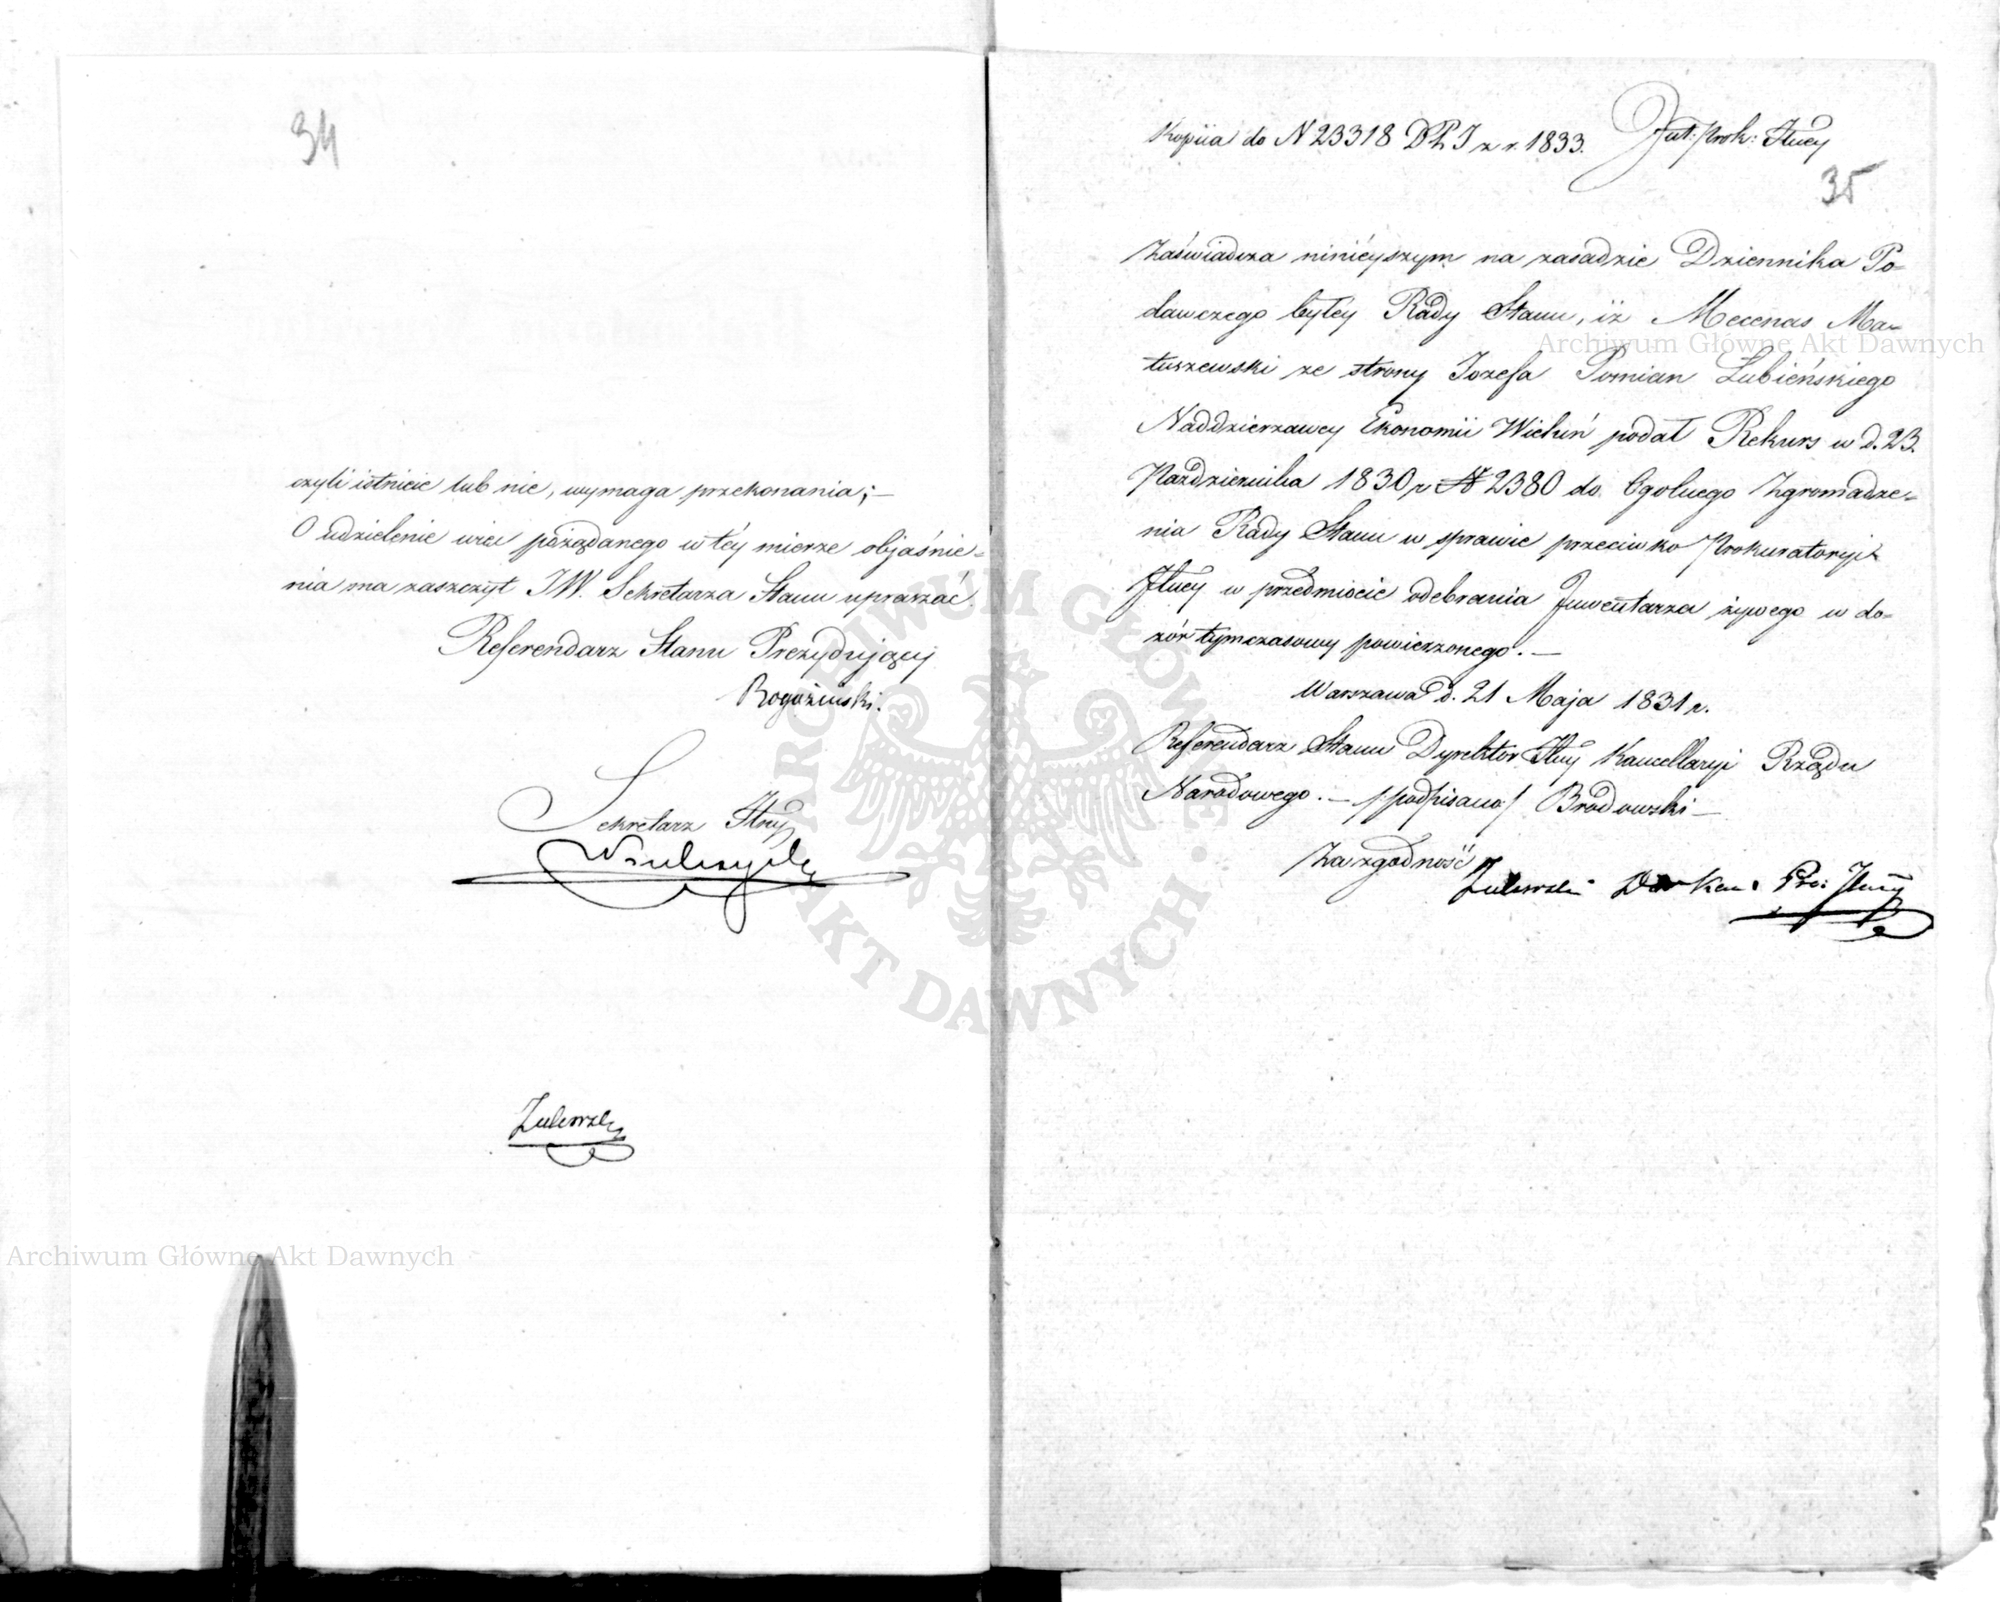 34
czyli istnieie lub nie, wymaga przekonania; —
O udzielenie więc pożądanego w téy mierze objaśnie-
nia ma zaszczyt JW. Sekretarza Stanu upraszać.
Referendarz Stanu Prezydujący
Rogoziński.
Sekretarz Jlny
Zulewski
Kopiia do N 23318 D.P.I z r. 1833.
Prok: Jlney
35
Zaświadcza ninieyszym na zasadzie Dziennika Po-
dawczego byłey Rady Stanu, iż Mecenas Ma-
tuszewski ze strony Jozefa Pomian Łubieńskiego
Naddzierzawcy Ekonomii Wieluń podał Rekurs w d. 23.
Października 1830 r N 2380 do Ogolnego Zgromadze-
nia Rady Stanu w sprawie przeciwko Prokuratoryi
Jlney w przedmiocie odebrania Inwentarza żywego w do-
zór tymczasowy powierzonego. —
Warszawa d. 21 Maja 1831 r.
Referendarz Stanu Dyrektor Jlny Kancellaryi Rządu
Narodowego. — /:podpisano:/ Brodowski —
Za zgodność
Zulewski Kan: Pro: Jlney
Archiwum Główne Akt Dawnych
Archiwum Główne Akt Dawnych
ARCHIWUM GŁÓWNE AKT DAWNYCH